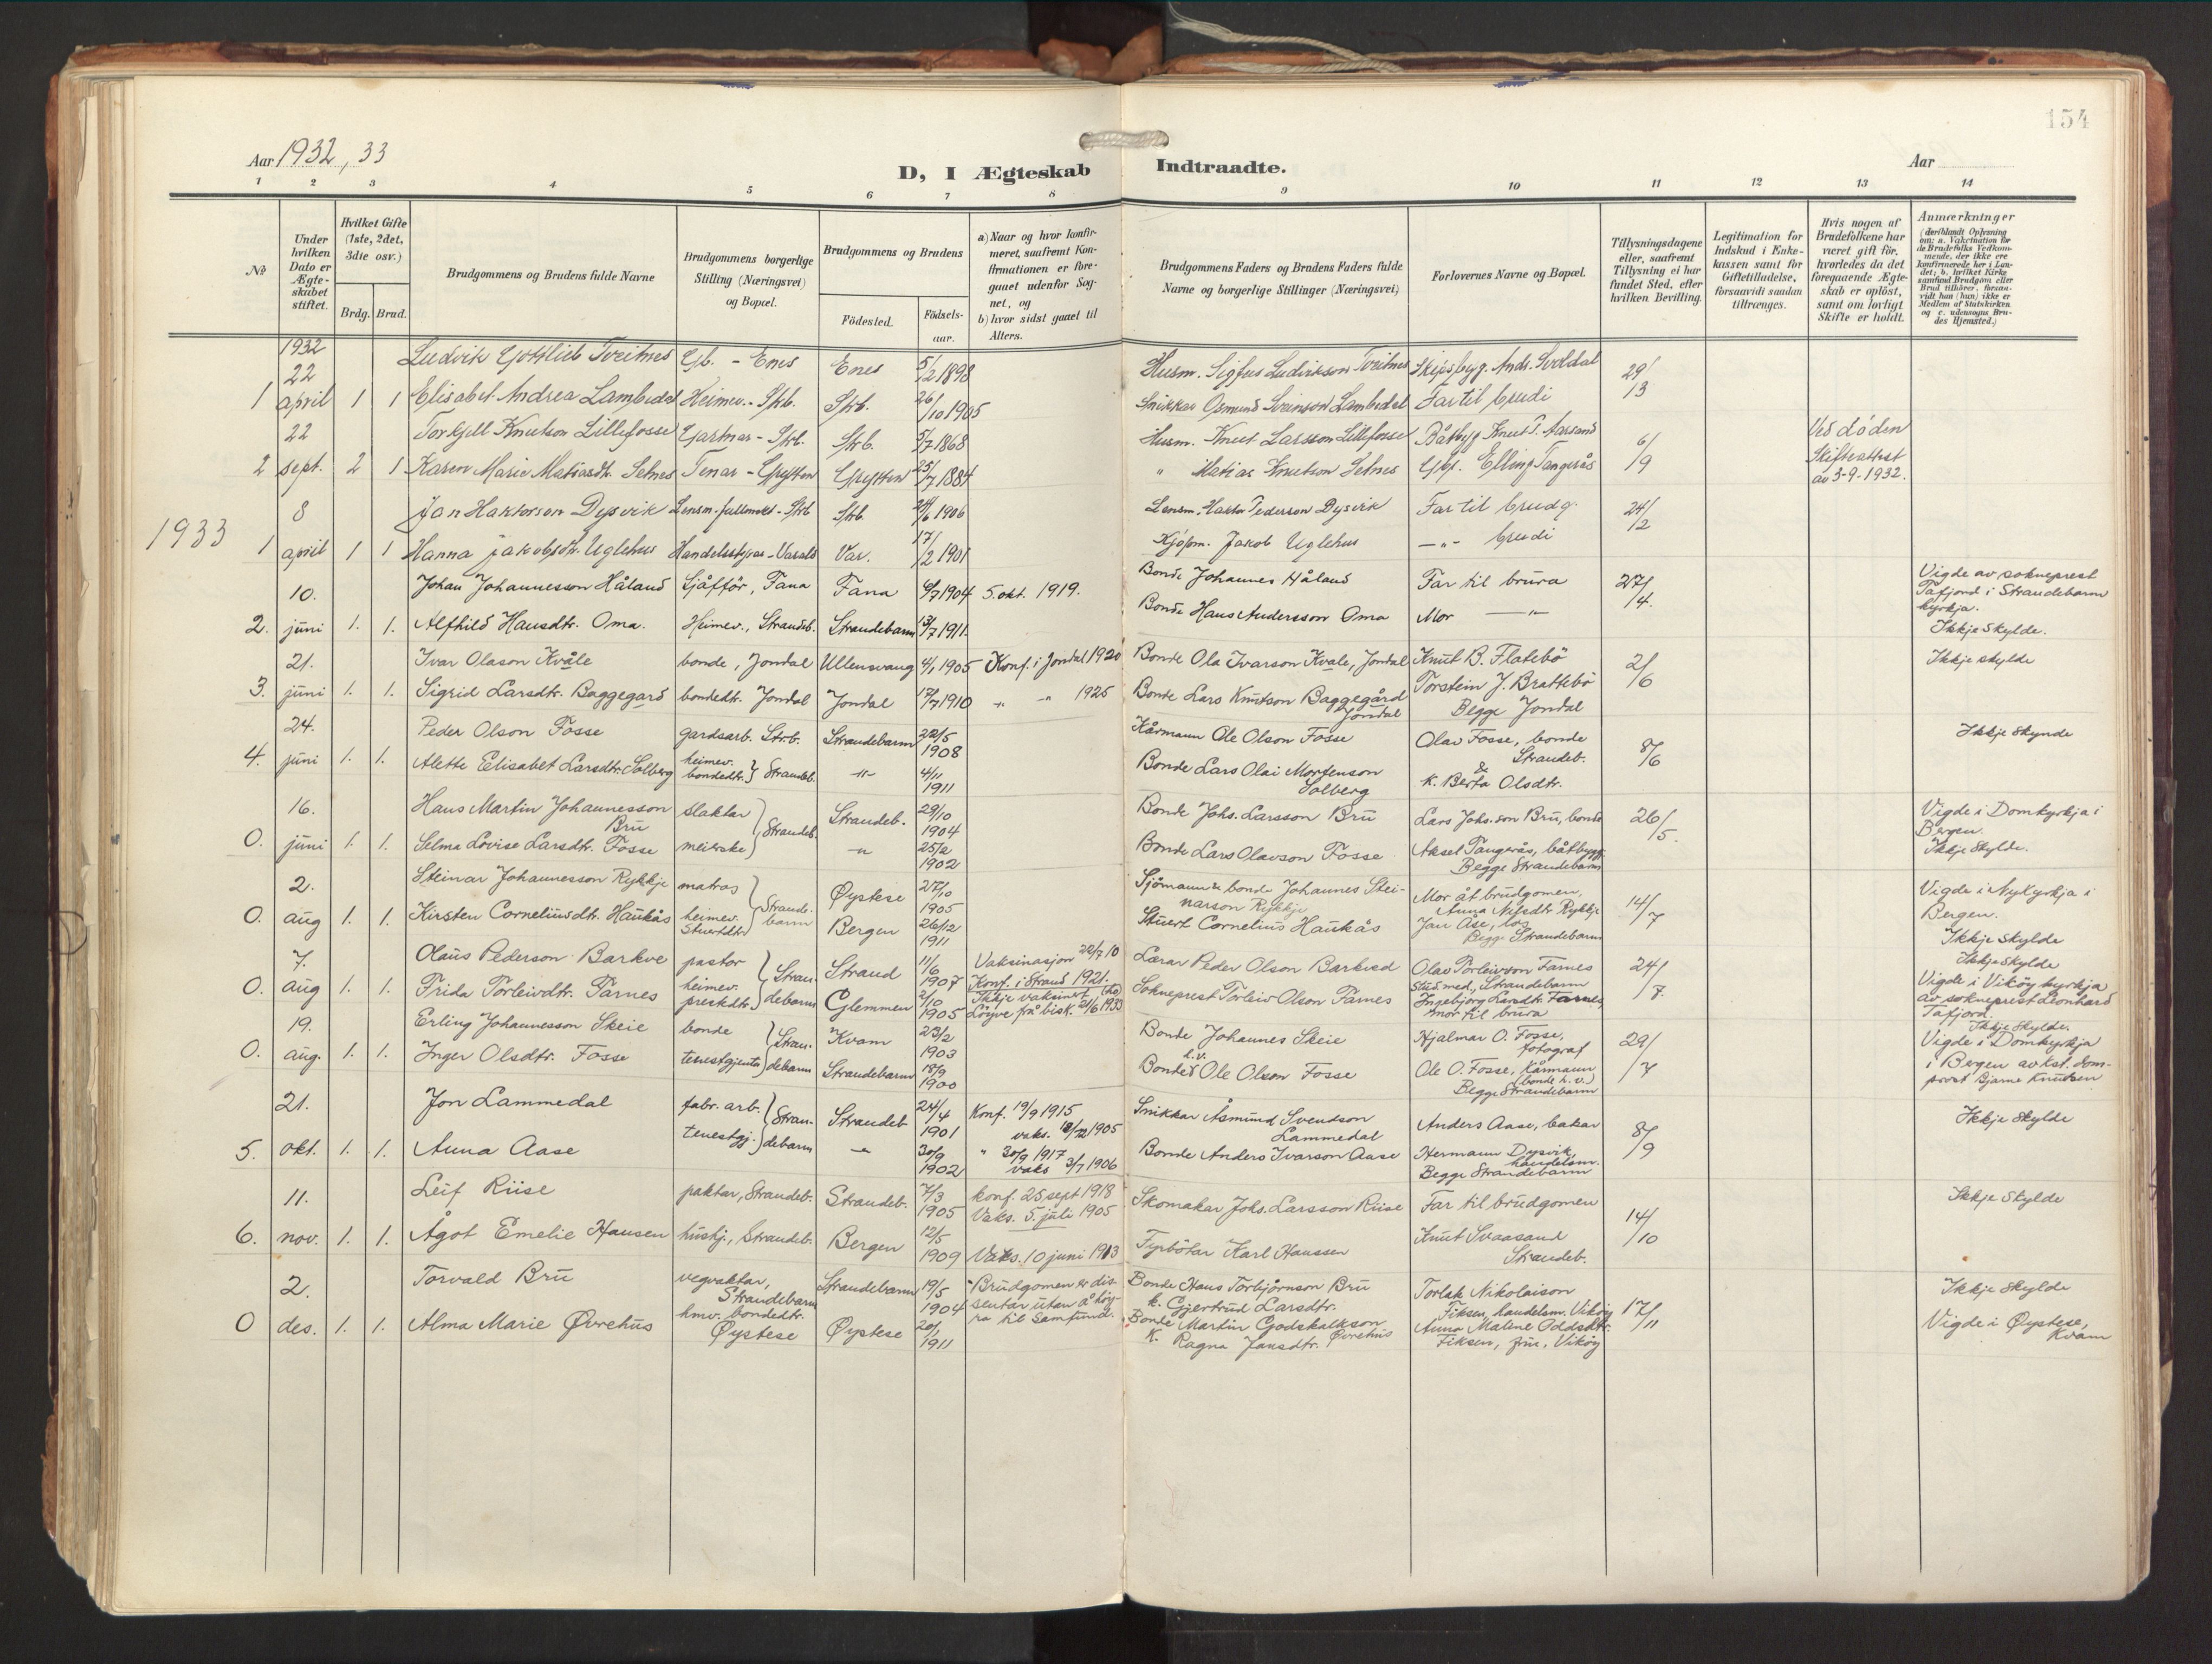 154
Aar 1932, 33
D, I Ægteskab Indtraadte.
Aar
1 2 3 4 5 6 7 8 9 10 11 12 13 14
No
Under hvilken Dato er Ægteskabet stiftet.
Hvilket Gifte (1ste, 2det, 3die osv.)
Brdg. Brud.
Brudgommens og Brudens fulde Navne
Brudgommens borgerlige Stilling (Næringsvei) og Bopæl.
Brudgommens og Brudens
Födested.
Födselsaar.
a) Naar og hvor konfirmeret, saafremt Konfirmationen er foregaaet udenfor Sognet, og
b) hvor sidst gaaet til Alters.
Brudgommens Faders og Brudens Faders fulde Navne og borgerlige Stillinger (Næringsvei)
Forlovernes Navne og Bopæl.
Tillysningsdagene eller, saafremt Tillysning ei har fundet Sted, efter hvilken Bevilling.
Legitimation for Indskud i Enkekassen samt for Giftetilladelse, forsaavidt saadan tiltrænges.
Hvis nogen af Brudefolkene har været gift för, hvorledes da det foregaaende Ægteskab er oplöst, samt om lovligt Skifte er holdt.
Anmærkninger
(deriblandt Oplysning om: a. Vakcination for de Brudefolks Vedkommende, der ikke ere konfirmerede her i Landet; b. hvilket Kirkesamfund Brudgom eller Brud tilhörer, forsaavidt han (hun) ikke er Medlem af Statskirken og c. udensogns Brudes Hjemsted.)
1932
22 Ludvik Gottlieb Tveitnes Gb. - Enes Enes 5/12 1898 Husm. Sigfus Ludvikson Tveitnes Skipsbyg. Andr. Svoldal 29/
1 april 1 1 Elisabet Andrea Lambedal Heimev. - Strb. Strb. 26/10 1905 Snikkar Osmund Sveinson Lambedal Far til brudi 13
22 Torkjell Knutson Lillefosse Gartnar - Strb. Strb. 5/7 1868 Husm. Knut Larsson Lillefosse Båtbyg Knut T. Aarsand 6/ Ved döden
2 sept. 2 1 Karen Marie Matiasdtr. Setnes Tenar - Grytten Grytten 25/7 1884 " Matias Knutson Setnes Gbr. Elling Tangerås 9 Skifteattest av 3-9-1932.
1933
8 Jan Haktorson Dysvik Lensm. fullmekt - Strb Strb. 24/6 1906 Lensm. Haktor Pederson Dysvik Far til brudg. 24/
1 april 1 1 Hanna Jakobsdtr. Uglehus Handelsstyrar - Varald Var. 17/2 1901 Kjöpm. Jakob Uglehus —"— brudi 2
10. Johan Johannesson Håland Sjåfför, Fana Fana 6/7 1904 5. okt. 1919. Bonde Johannes Håland Far til brura 27/ Vigde av sokneprest Tafjord i Strandebarm kyrkja.
2. juni 1. 1. Alfhild Hansdtr. Oma. Heimev., Strandeb. Strandebarm 13/7 1911. Bonde Hans Andersson Oma Mor —"— 4. Ikkje skylde.
21. Ivar Olason Kvåle bonde, Jondal Ullensvang 4/1 1905 Konf. i Jondal 1920 Bonde Ola Ivarson Kvale, Jondal Knut B. Flatebö 2/ Ikkje skylde
3. juni 1. 1. Sigrid Larsdtr. Baggegard bondedtr. Jondal Jondal 17/7 1910 " " 1925 Bonde Lars Knutson Baggegård Jondal Torstein J. Brattebö Begge Jondal 6
24. Peder Olson Fosse gardsarb. Strb. Strandebarm 22/5 1908 Kårmann Ole Olson Fosse Olav Fosse, bonde Strandeb. 8/ Ikkje skynde
4. juni 1. 1. Alette Elisabet Larsdtr. Solberg heimev. bondedtr. Strandeb. —"— 4/11 1911 Bonde Lars Olai Mortenson Solberg & k. Berta Olsdtr. 6
16. Hans Martin Johannesson Bru slaktar Strandeb. Strandeb. 29/10 1904 Bonde Johs. Larsson Bru Lars Johs.son Bru, bonde 26/ Vigde i Domkyrkja i Bergen.
0. juni 1. 1. Selma Lovise Larsdtr. Fosse meierske —"— 25/2 1902 Bonde Lars Olavson Fosse Aksel Tangerås, båtbygg. Begge Strandebarm 5. Ikkje skylde.
2. Steinar Johannesson Rykkje matros Strandebarm Øystese 27/10 1905 Sjömann & bonde Johannes Steinarson Rykkje Mor åt brudgomen, Anna Nilsdtr Rykkje 14/ Vigde i Nykyrkja i Bergen.
0. aug 1. 1. Kirsten Corneliusdtr. Haukås heimev. Stuertdtr Bergen 26/12 1911 Stuert Cornelius Haukås Jan Ase, los Begge Strandebarm 7 Ikkje skylde
7. Olaus Pederson Barkve pastor Strandebarm Strand 11/6 1907 Vaksinasjon 22/7 10 Konf. i Strand 1921. Lærar Peder Olson Barkved Olav Torleivson Farnes Stud med., Strandebarm 24/ Ikkje skylde
0. aug 1. 1. Frida Torleivdtr. Farnes heimev. prestdtr. Glemmen 2/10 1905 Ikkje vaksinert Löyve frå bisk. 21/6 1933 Sokneprest Torleiv Olson Farnes Ingebjörg Larsdtr. Farnes, mor til brura 7. Vigde i Viköy kyrkja av sokneprest Leonhard Tafjord.
19. Erling Johannesson Skeie bonde Strandebarm Kvam 23/2 1903 Bonde Johannes Skeie Hjalmar O. Fosse, fotograf 29/ Ikkje skylde.
0. aug. 1. 1. Inger Olsdtr. Fosse tenestgjenta Strandebarm 18/9 1900 Bonde h.v. Ole Olson Fosse Ole O. Fosse, kårmann (bonde h.v.) Begge Strandebarm 7 Vigde i Domkyrkja i Bergen av kst. domprost Bjarne Knudsen
21. Jon Lammedal fabr. arb. Strandebarm Strandeb 24/4 1901 Konf. 19/9 1915 vaks. 1905 Snikkar Åsmund Svendson Lammedal Anders Aase, bakar 8/ Ikkje skylde
5. okt. 1. 1. Anna Aase tenestgj. —"— 30/9 1902 " 30/9 1917 vaks 3/7 1906 Bonde Anders Ivarson Aase Hermann Dysvik, handelsm. Begge Strandebarm 9
11. Leif Riise paktar, Strandeb. Strandeb. 7/3 1905 konf. 25 sept 1918 Vaks. 5. juli 1905 Skomakar Johs. Larsson Riise Far til brudgomen 14/ Ikkje skylde
6. nov. 1. 1. Ågot Emelie Hansen huskj., Strandeb. Bergen 12/5 1909 Vaks. 10 juni 1913 Fyrbötar Karl Hanssen Knut Svaasand Strandeb. 10
2. Torvald Bru vegvaktar, Strandebarm Strandebarm 19/5 1904 Brudgomen er dissentar utan å höyra til samfund. Bonde Hans Torbjörnson Bru k. Gjertrud Larsdtr. Torlak Nikolaison Fiksen, handelsm. Viköy 17/ Ikkje skylde
0 des. 1. 1. Alma Marie Øvrehus hmv. bondedtr. Øystese Øystese 20/1 1911 Bonde Martin Godskalkson Øvrehus k. Ragna Jansdtr. Anna Malene Oddsdtr. Fiksen, frue, Viköy 11 Vigde i Øystese, Kvam